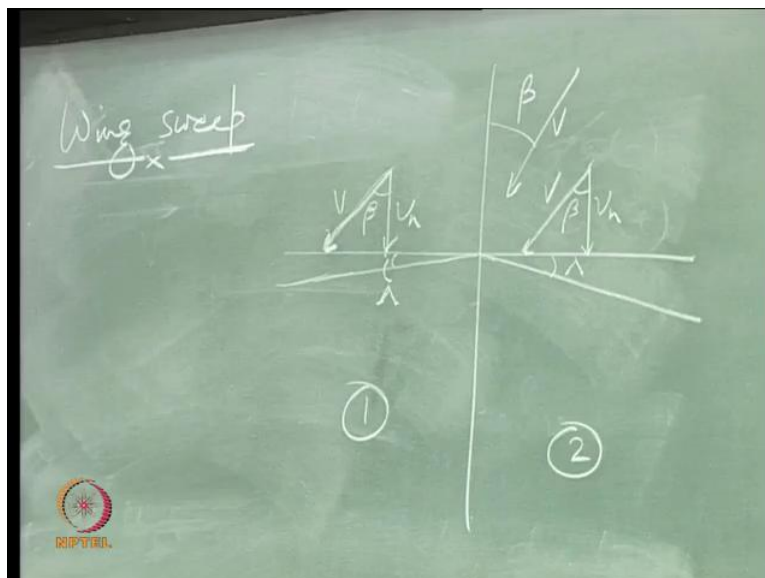 Wing sweep
x
β
V
V β Vn
V β Vn
Λ
Λ
1
2
NPTEL